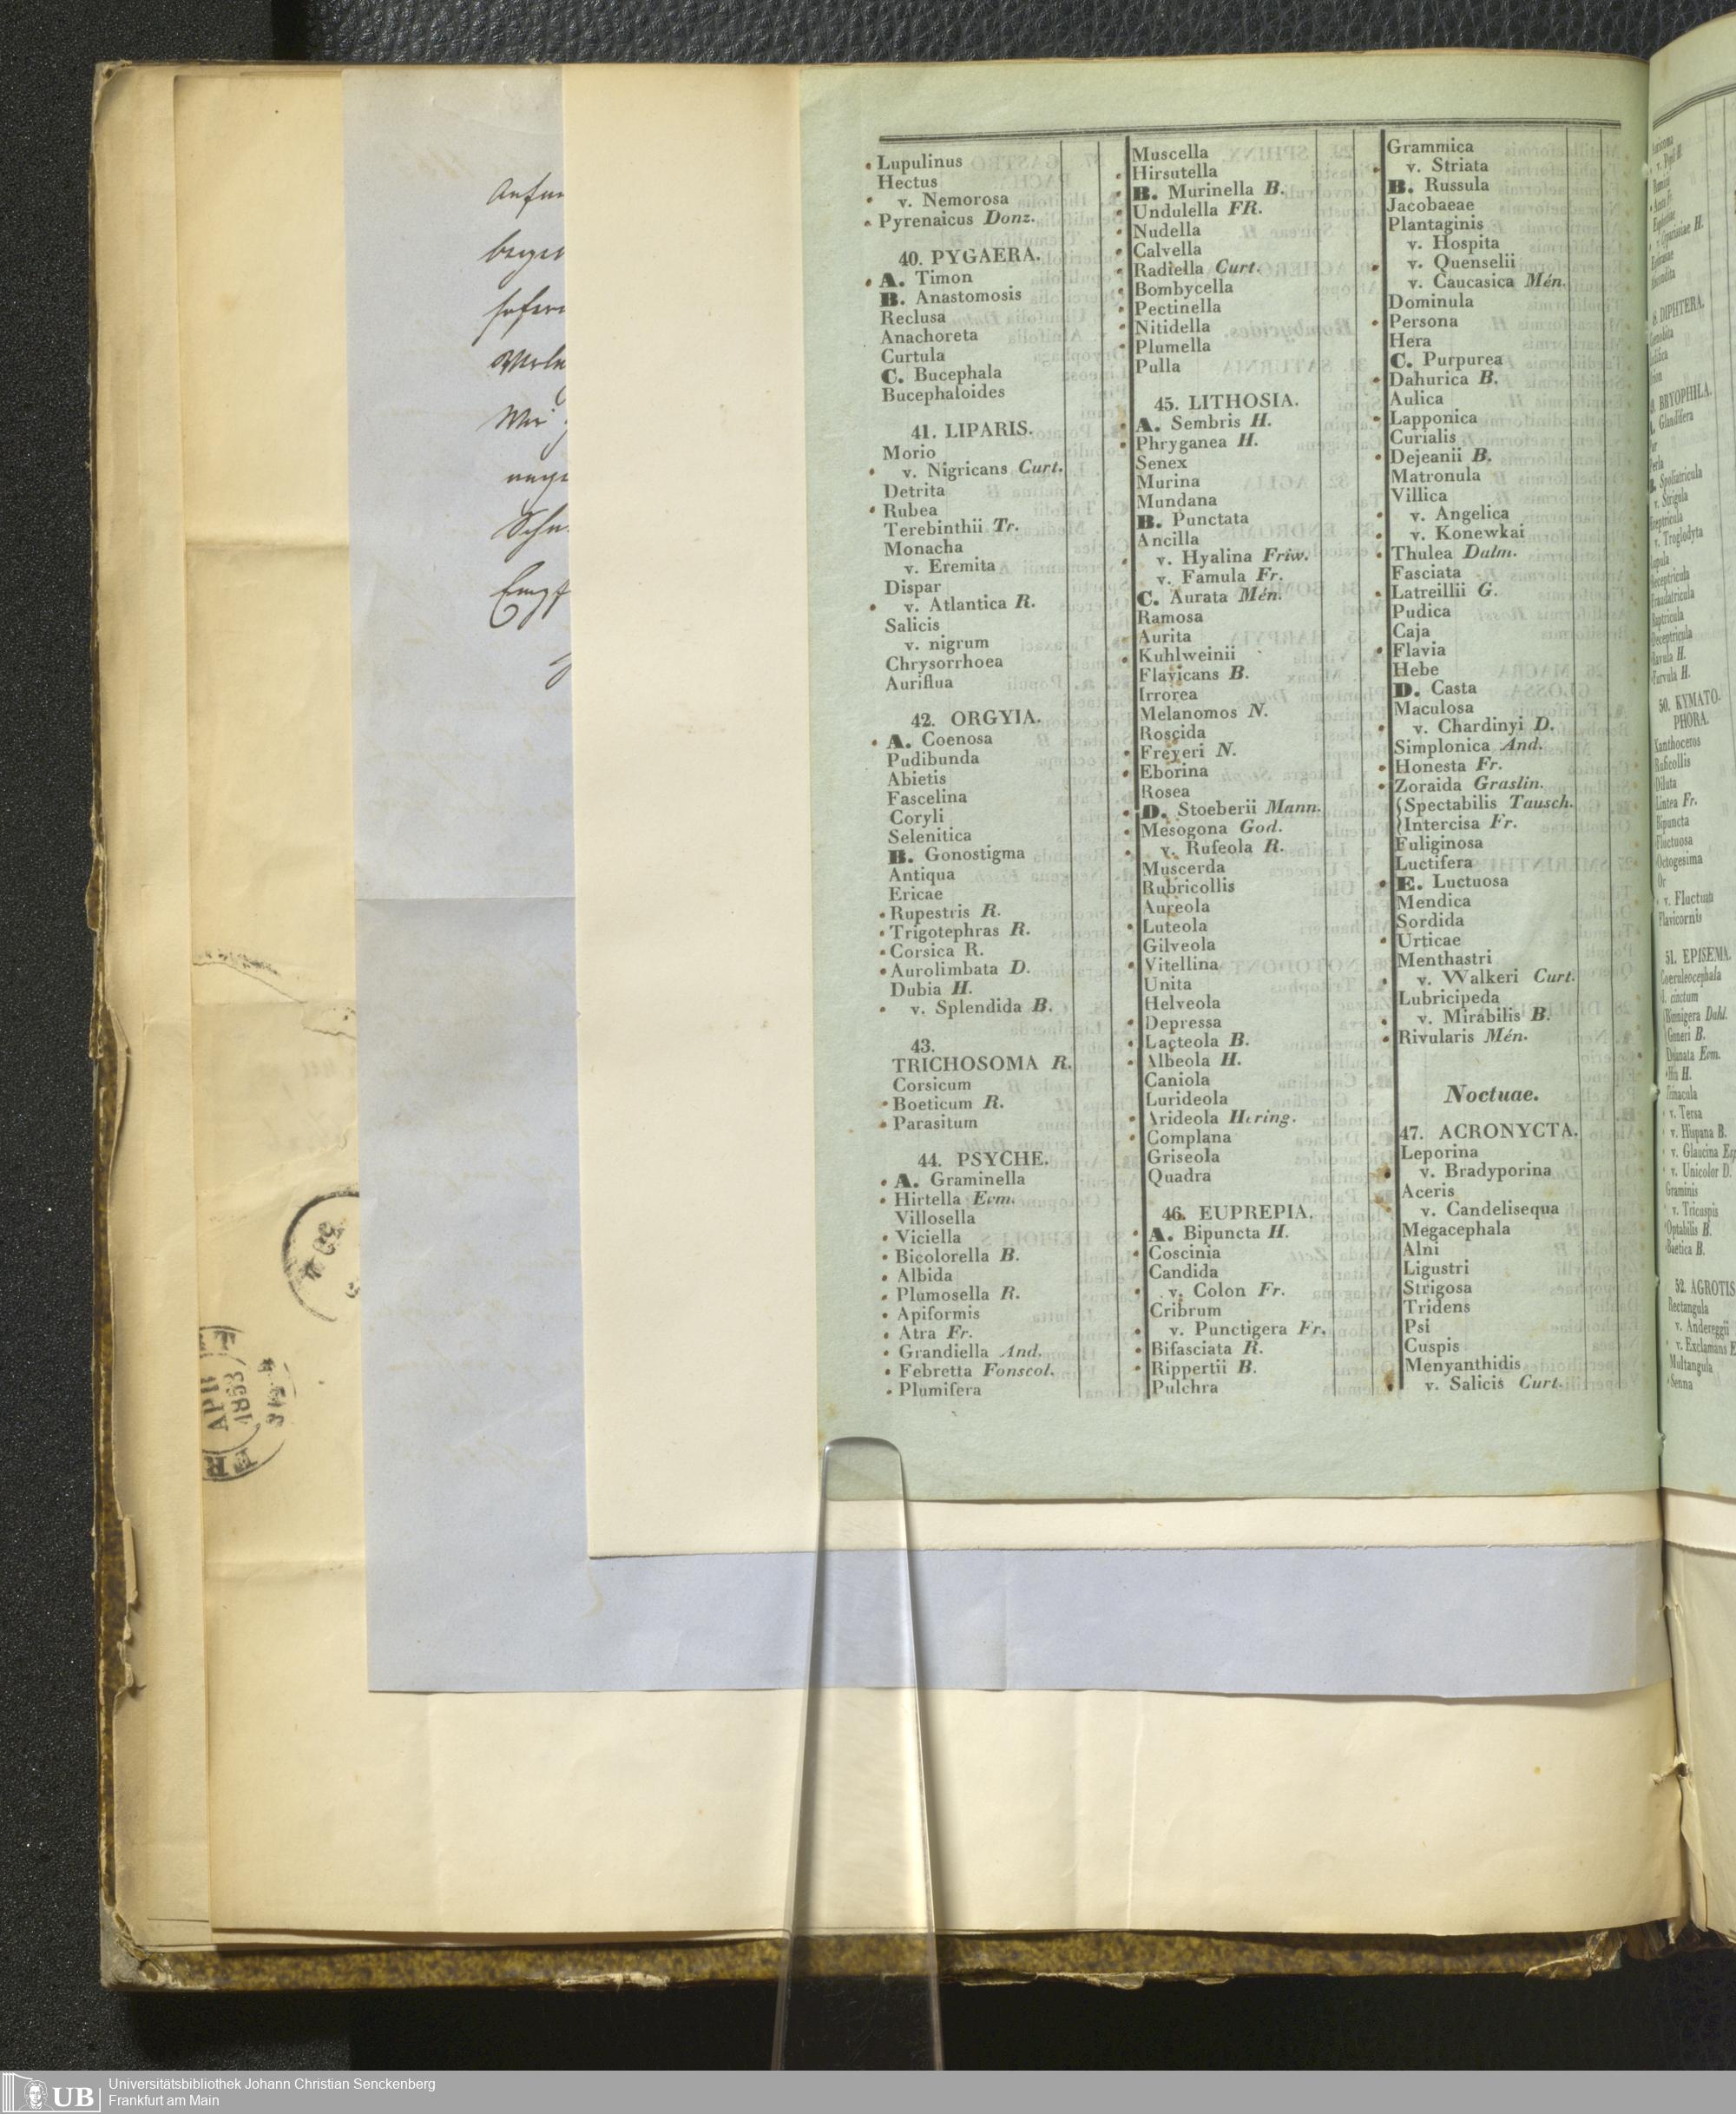 Lupulinus
Hectus
v. Nemorosa
Pyrenaicus Donz.
40. PYGAERA.
A. Timon
B. Anastomosis
Reclusa
Anachoreta
Curtula
C. Bucephala
Bucephaloides
41. LIPARIS.
Morio
v. Nigricans Curt.
Detrita
Rubea
Terebinthii Tr.
Monacha
v. Eremita
Dispar
v. Atlantica R.
Salicis
v. nigrum
Chrysorrhoea
Auriflua
42. ORGYIA.
A. Coenosa
Pudibunda
Abietis
Fascelina
Coryli
Selenitica
B. Gonostigma
Antiqua
Ericae
Rupestris R.
Trigotephras R.
Corsica R.
Aurolimbata D.
Dubia H.
v. Splendida B.
43.
TRICHOSOMA R.
Corsicum
Boeticum R.
Parasitum
44. PSYCHE.
A. Graminella
Hirtella Ecm.
Villosella
Viciella
Bicolorella B.
Albida
Plumosella R.
Apiformis
Atra Fr.
Grandiella And.
Febretta Fonscol.
Plumifera
Muscella
Hirsutella
B. Murinella B.
Undulella FR.
Nudella
Calvella
Radiella Curt.
Bombycella
Pectinella
Nitidella
Plumella
Pulla
45. LITHOSIA.
A. Sembris H.
Phryganea H.
Senex
Murina
Mundana
B. Punctata
Ancilla
v. Hyalina Friw.
v. Famula Fr.
C. Aurata Mén.
Ramosa
Aurita
Kuhlweinii
Flavicans B.
Irrorea
Melanomos N.
Roscida
Freyeri N.
Eborina
Rosea
D. Stoeberii Mann.
Mesogona God.
v. Rufeola R.
Muscerda
Rubricollis
Aureola
Luteola
Gilveola
Vitellina
Unita
Helveola
Depressa
Lacteola B.
Albeola H.
Caniola
Lurideola
Arideola Hering.
Complana
Griseola
Quadra
46. EUPREPIA.
A. Bipuncta H.
Coscinia
Candida
v. Colon Fr.
Cribrum
v. Punctigera Fr.
Bifasciata R.
Rippertii B.
Pulchra
Grammica
v. Striata
B. Russula
Jacobaeae
Plantaginis
v. Hospita
v. Quenselii
v. Caucasica Mén.
Dominula
Persona
Hera
C. Purpurea
Dahurica B.
Aulica
Lapponica
Curialis
Dejeanii B.
Matronula
Villica
v. Angelica
v. Konewkai
Thulea Dalm.
Fasciata
Latreillii G.
Pudica
Caja
Flavia
Hebe
D. Casta
Maculosa
v. Chardinyi D.
Simplonica And.
Honesta Fr.
Zoraida Graslin.
Spectabilis Tausch.
Intercisa Fr.
Fuliginosa
Luctifera
E. Luctuosa
Mendica
Sordida
Urticae
Menthastri
v. Walkeri Curt.
Lubricipeda
v. Mirabilis B.
Rivularis Mén.
Noctuae.
47. ACRONYCTA.
Leporina
v. Bradyporina
Aceris
v. Candelisequa
Megacephala
Alni
Ligustri
Strigosa
Tridens
Psi
Cuspis
Menyanthidis
v. Salicis Curt.
DIPHTERA.
BRYOPHILA.
Glandifera
Perla
Spoliatricula
v. Troglodyta
50. KYMATO-
PHORA.
Xanthoceros
Ruficollis
Diluta
Bipuncta
Fluctuosa
Octogesima
Or
Flavicornis
51. EPISEMA.
Coeruleocephala
v. Tersa
v. Hispana B.
v. Glaucina
v. Unicolor D.
Graminis
v. Tricuspis
Optabilis B.
Baetica B.
52. AGROTIS
Rectangula
v. Andereggii
v. Exclamans
Multangula
Senna
APR
1853
UB
Universitätsbibliothek Johann Christian Senckenberg
Frankfurt am Main